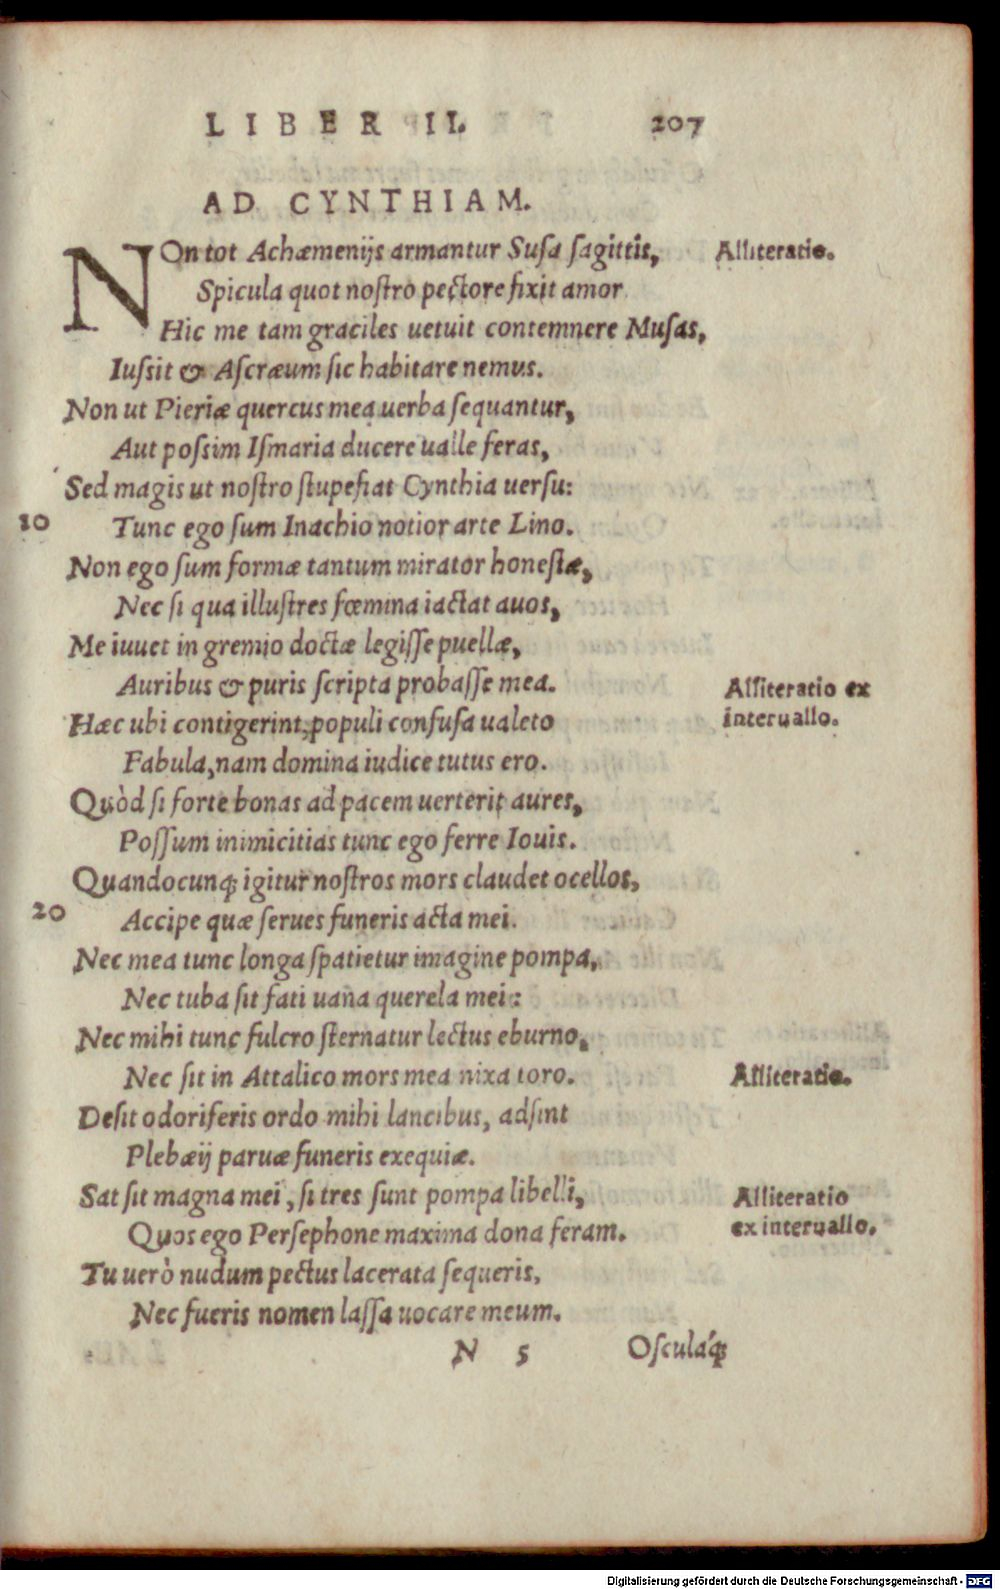 LIBER II. 207
AD CYNTHIAM.
NOn tot Achæmenijs armantur Susa sagittis, Alliteratio.
Spicula quot nostro pectore fixit amor
Hic me tam graciles uetuit contemnere Musas,
Iussit & Ascræum sic habitare nemus.
Non ut Pieriæ quercus mea uerba sequantur,
Aut possim Ismaria ducere ualle feras,
Sed magis ut nostro stupefiat Cynthia uersu:
10 Tunc ego sum Inachio notior arte Lino.
Non ego sum formæ tantum mirator honestæ,
Nec si qua illustres fœmina iactat auos,
Me iuuet in gremio doctæ legisse puellæ,
Auribus & puris scripta probasse mea. Alliteratio ex
Hæc ubi contigerint, populi confusa ualeto interuallo.
Fabula, nam domina iudice tutus ero.
Quòd si forte bonas ad pacem uerterit aures,
Possum inimicitias tunc ego ferre Iouis.
Quandocunq; igitur nostros mors claudet ocellos,
20 Accipe quæ serues funeris acta mei.
Nec mea tunc longa spatietur imagine pompa,
Nec tuba sit fati uana querela mei:
Nec mihi tunc fulcro sternatur lectus eburno,
Nec sit in Attalico mors mea nixa toro. Alliteratio.
Desit odoriferis ordo mihi lancibus, adsint
Plebæij paruæ funeris exequiæ.
Sat sit magna mei, si tres sunt pompa libelli, Alliteratio
Quos ego Persephone maxima dona feram. ex interuallo.
Tu uerò nudum pectus lacerata sequeris,
Nec fueris nomen lassa uocare meum.
N 5 Osculáq;
Digitalisierung gefördert durch die Deutsche Forschungsgemeinschaft - DFG